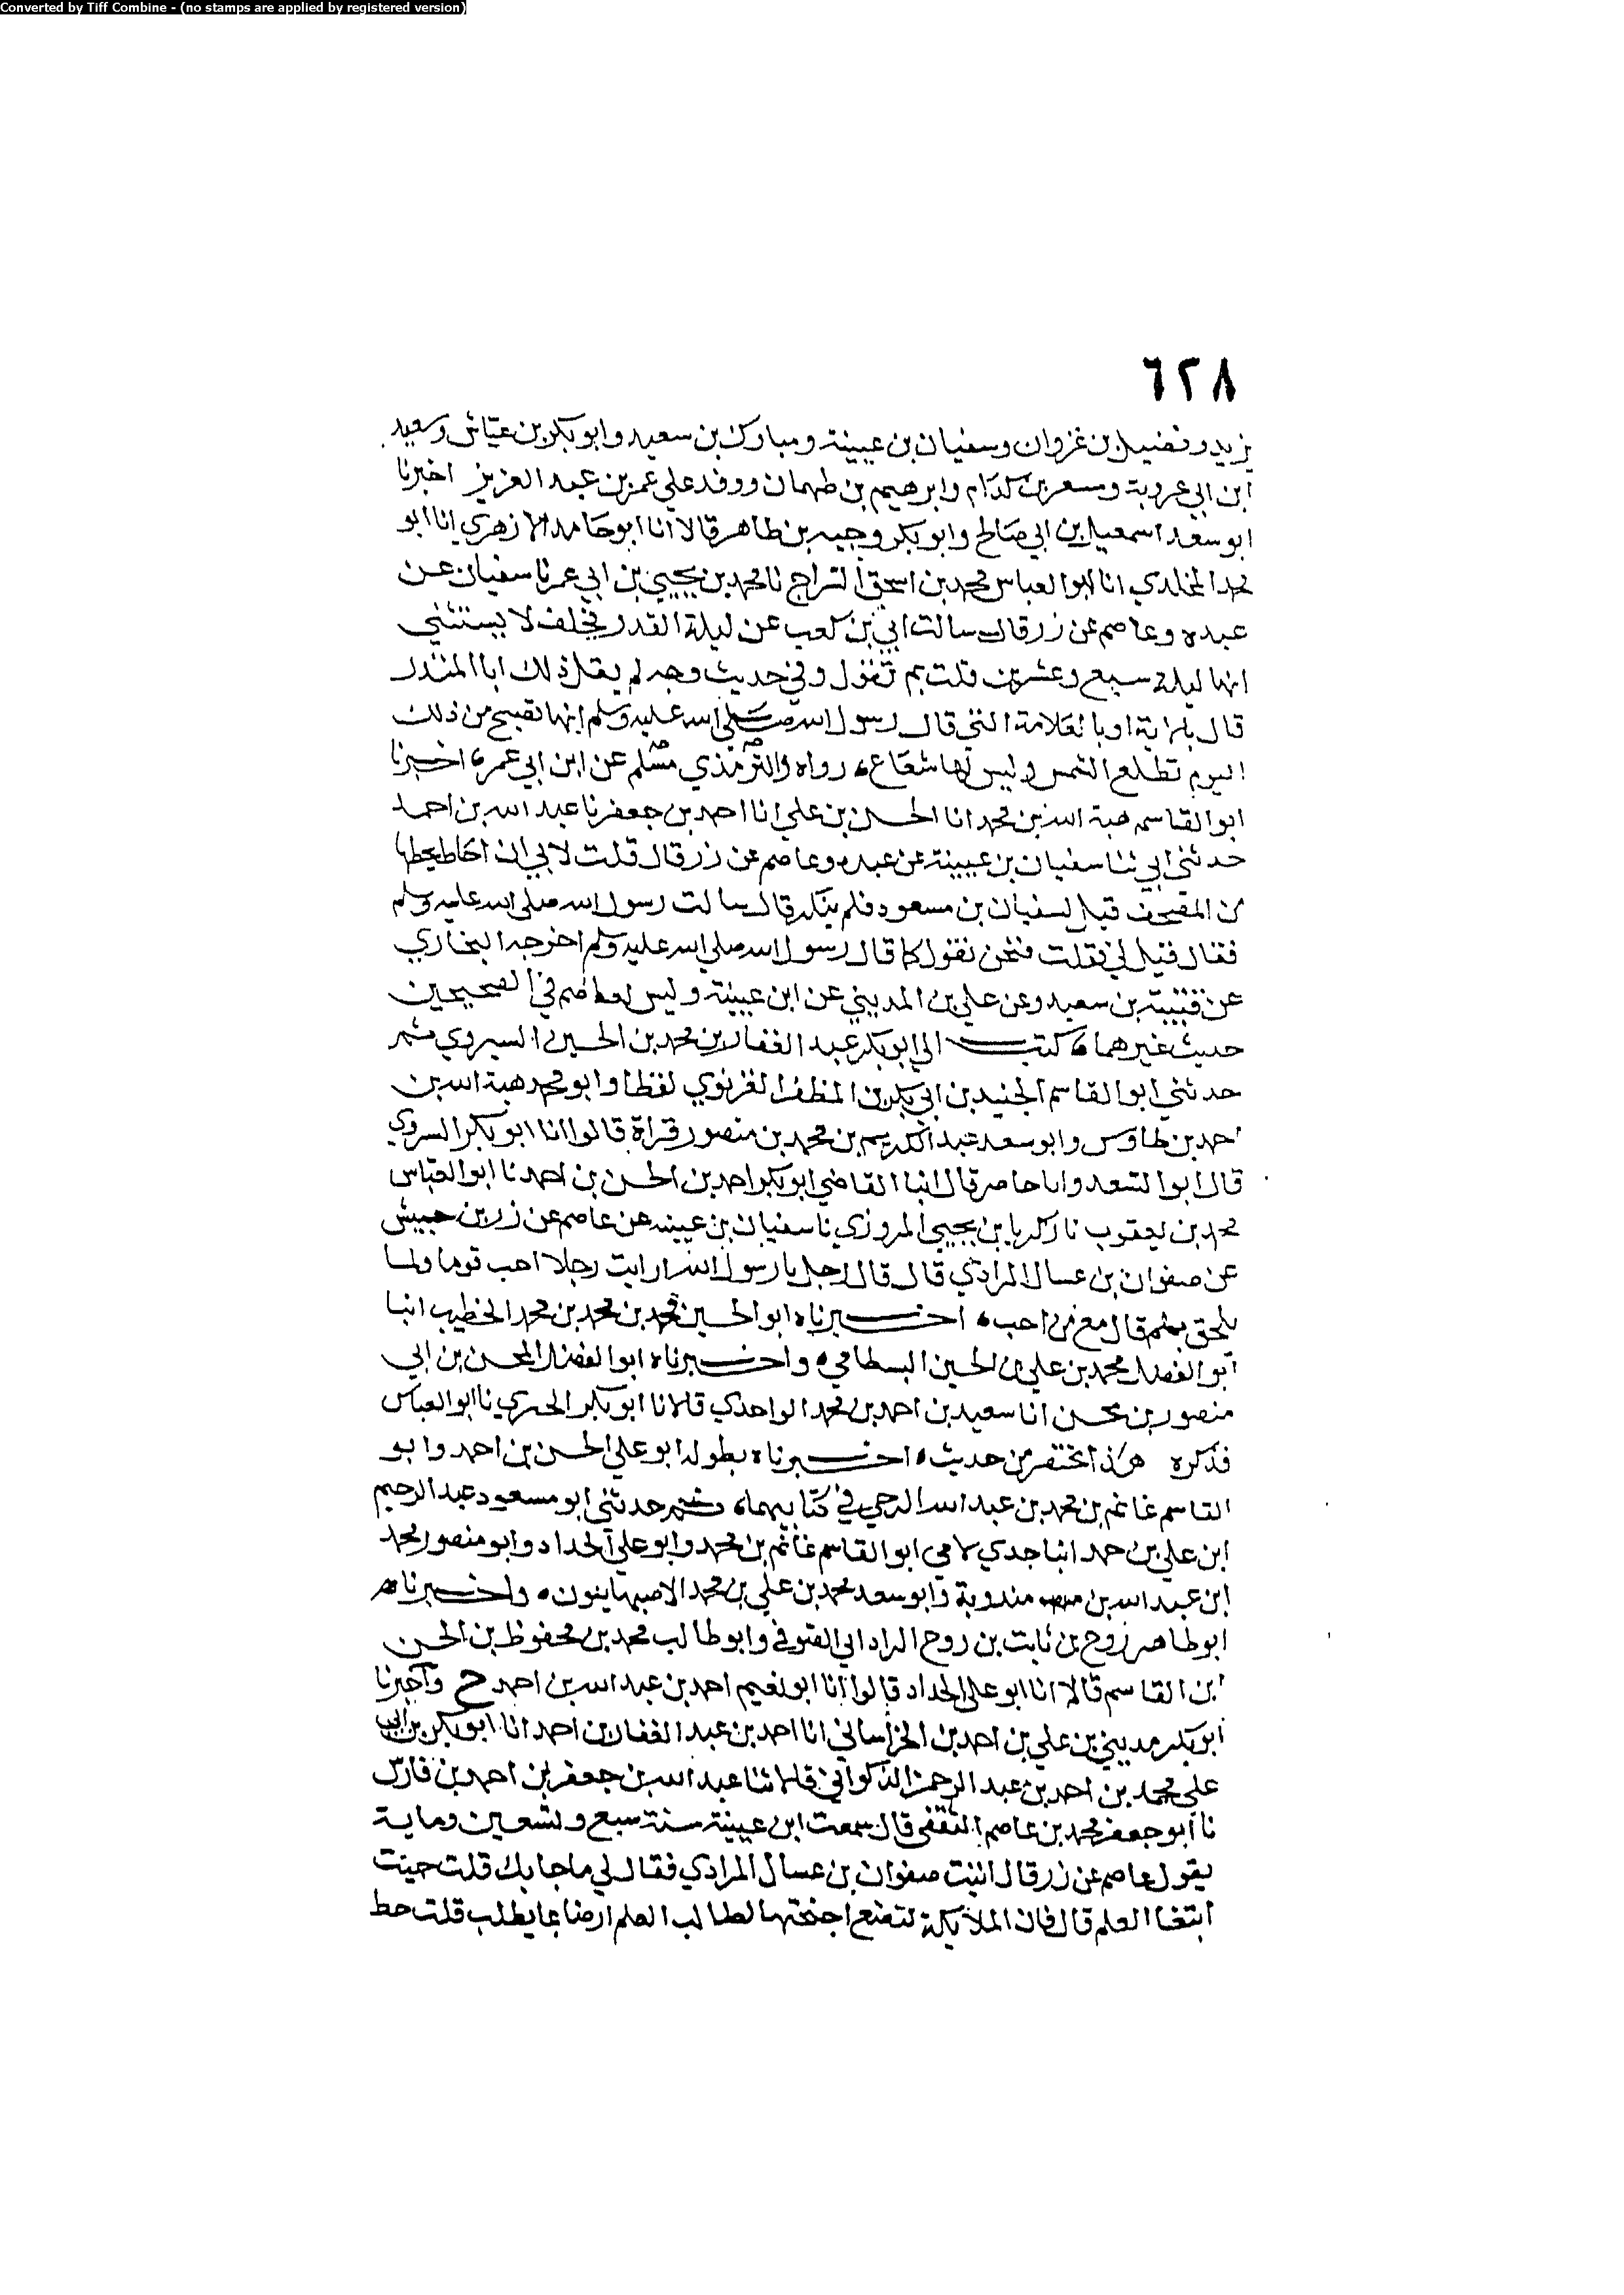 Converted by Tiff Combine - (no stamps are applied by registered version)
٦٢٨
يزيد وفضيل بن غزوان وسفيان بن عيينة ومبارك بن سعيد وابو بكر بن عياش وسعيد
ابن ابي عروبة ومسعر بن كدام وابرهيم بن طهمان ووفد علي عمر بن عبد العزيز اخبرنا
ابو سعد اسمعيل بن ابي صالح وابو بكر وجيه بن طاهر قالا انا ابو حامد الازهري انا ابو
محمد المخلدي انا ابو العباس محمد بن اسحق السراج نا محمد بن يحيي بن ابي عمر نا سفيان عن
عبده وعاصم عن زر قال سالت ابي بن كعب عن ليلة القدر فحلف لا يستثني
انها ليلة سبع وعشرين قلت بم تقول وفي حديث وجيه لم يقل ذلك ابا المنذر
قال بالاية او بالعلامة التي قال رسول الله صلى الله عليه وسلم انها تصبح من ذلك
اليوم تطلع الشمس وليس لها شعاع رواه والترمذي مسلم عن ابن ابي عمر اخبرنا
ابو القاسم هبة الله بن محمد انا الحسن بن علي انا احمد بن جعفر نا عبد الله بن احمد
حدثني ابي ثنا سفيان بن عيينة عن عبده وعاصم عن زر قال قلت لابي ان اخاك يحكها
من المصحف قيل لسفيان بن مسعود فلم ينكر قال سالت رسول الله صلى الله عليه وسلم
فقال فقيل لي فقلت فنحن نقول كما قال رسول الله صلي الله عليه وسلم اخرجه البخاري
عن قتيبة بن سعيد وعن علي بن المديني عن ابن عيينة وليس لعاصم في الصحيحين
حديث غيرهما كتب الي ابو بكر عبد الغفار بن محمد بن الحسين السيروي ثم
حدثني ابو القاسم الجنيد بن ابي بكر بن المظفر الغزنوي لفظا وابو محمد هبة الله بن
احمد بن طاوس وابو سعد عبد الكريم بن محمد بن منصور قراة قالوا انا ابو بكر السروي
قال ابو السعد وانا حاضر قال انبا القاضي ابو بكر احمد بن الحسن بن احمد نا ابو العباس
محمد بن يعقوب نا زكريا بن يحيي المروزي نا سفيان بن عيينه عن عاصم عن زر بن حبيش
عن صفوان بن عسال المرادي قال قال رجل يا رسول الله ارايت رجلا احب قوما ولما
يلحق بهم قال مع من احب اخبرناه ابو الحسين محمد بن محمد بن محمد الخطيب انبا
ابو الفضل محمد بن علي بن الحسين البسطامي واخبرناه ابو الفضل المحسن بن ابي
منصور بن محسن انا سعيد بن احمد بن محمد الواحدي قالانا ابو بكر الحيري نا ابو العباس
فذكره هكذا مختصر من حديث اخبرناه بطوله ابو علي الحسن بن احمد وابو
القاسم غانم بن محمد بن عبد الله البرجي في كتابيهما ثم حدثني ابو مسعود عبد الرحيم
ابن علي بن حمد انبا جدي لامي ابو القاسم غانم بن محمد وابو علي الحداد وابو منصور محمد
ابن عبد الله بن مندوية وابو سعد محمد بن علي بن محمد الاصبهانيون واخبرناه
ابو طاهر روح بن ثابت بن روح الراراني الصوفي وابو طالب محمد بن محفوظ بن الحسن
ابن القاسم قالا انا ابو علي الحداد قالوا انا ابو نعيم احمد بن عبد الله بن احمد ح واخبرنا
ابو بكر مديني بن علي بن احمد بن الخراساني انا احمد بن عبد الغفار بن احمد انا ابو بكر بن ابي
علي محمد بن احمد بن عبد الرحمن الذكواني قالا ثنا عبد الله بن جعفر بن احمد بن فارس
نا ابو جعفر محمد بن عاصم الثقفي قال سمعت ابن عيينة سنة سبع وتسعين وماية
يقول عاصم عن زر قال اتيت صفوان بن عسال المرادي فقال لي ما جا بك قلت جيت
ابتغا العلم قال فان الملايكة لتضع اجنحتها لطالب العلم ارضا بما يطلب قلت حط